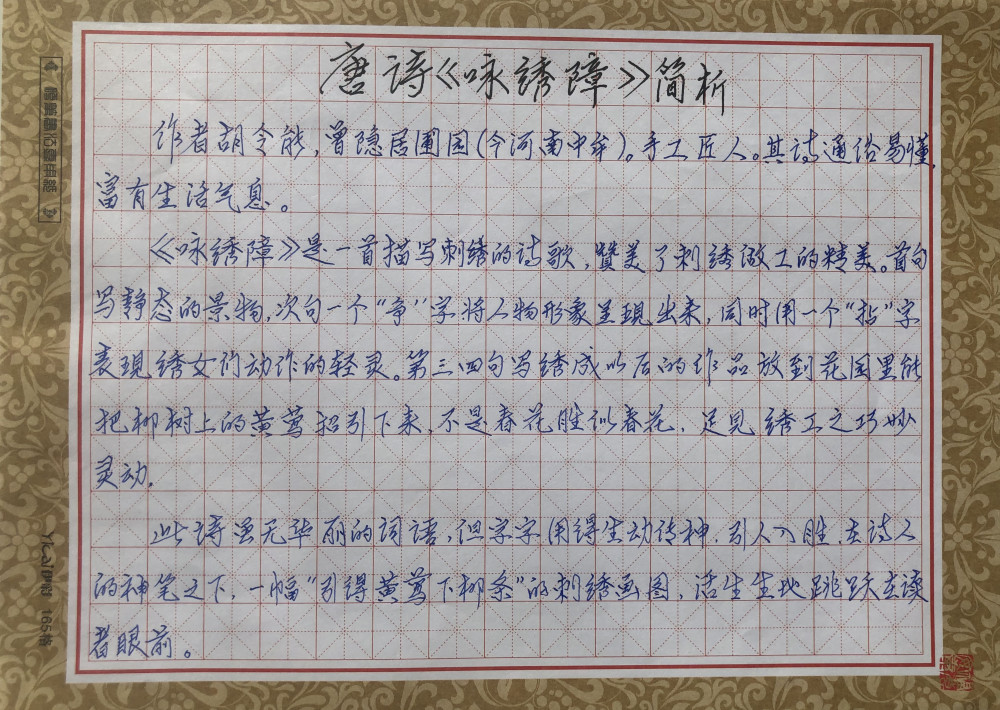 唐诗《咏绣障》简析
作者胡令能，曾隐居圃园(今河南中牟)。手工匠人。其诗通俗易懂，
富有生活气息。
《咏绣障》是一首描写刺绣的诗歌，赞美了刺绣做工的精美。首句
写静态的景物，次句一个“争”字将人物形象呈现出来，同时用一个“拈”字
表现绣女们动作的轻灵。第三四句写绣成以后的作品放到花园里能
把柳树上的黄莺招引下来，不是春花胜似春花，足见绣工之巧妙
灵动。
此诗虽无华丽的词语，但字字用得生动传神，引人入胜，在诗人
的神笔之下，一幅“引得黄莺下柳条”的刺绣画图，活生生地跳跃在读
者眼前。
165格